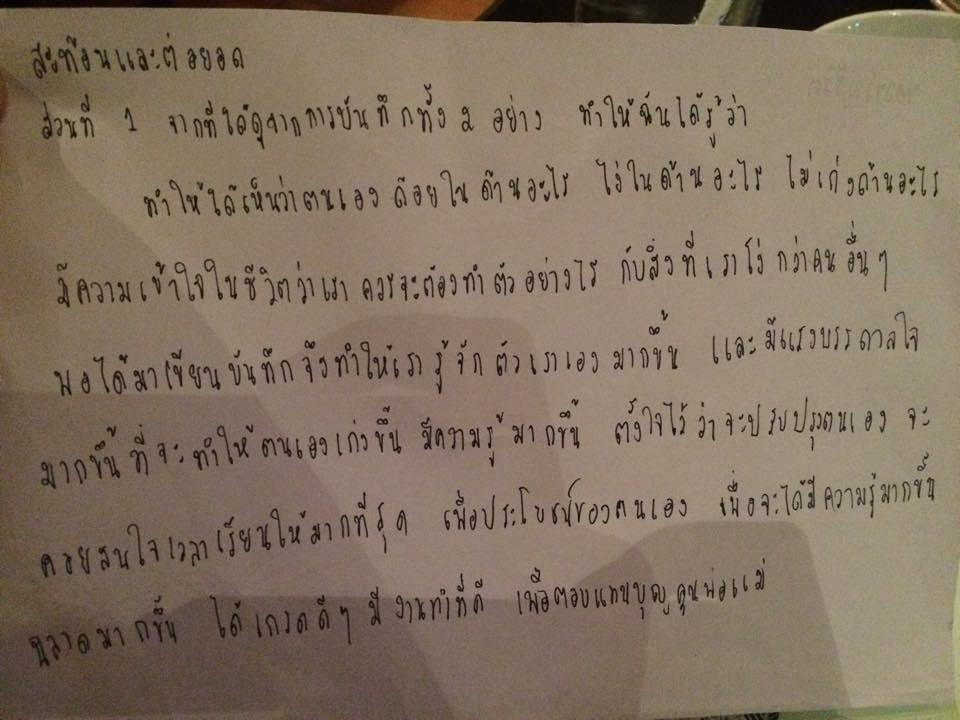 สะท้อนและต่อยอด
ส่วนที่ 1 จากที่ได้ดูจากการบันทึกทั้ง 2 อย่าง ทำให้ฉันได้รู้ว่า
ทำให้ได้เห็นว่าตนเองด้อยในด้านอะไร โง่ในด้านอะไร ไม่เก่งด้านอะไร
มีความเข้าใจในชีวิตว่าเราควรจะต้องทำตัวอย่างไร กับสิ่งที่เราโง่กว่าคนอื่นๆ
พอได้มาเขียนบันทึกจึงทำให้เรารู้จักตัวเราเองมากขึ้น และมีแรงบรรดาลใจ
มากขึ้นที่จะทำให้ตนเองเก่งขึ้น มีความรู้มากขึ้น ตั้งใจไว้ว่าจะปรับปรุงตนเอง จะ
คอยสนใจเวลาเรียนให้มากที่สุด เพื่อประโยชน์ของตนเอง เพื่อจะได้มีความรู้มากขึ้น
ฉลาดมากขึ้น ได้เกรดดีๆ มีงานทำที่ดี เพื่อตอบแทนบุญคุณพ่อแม่